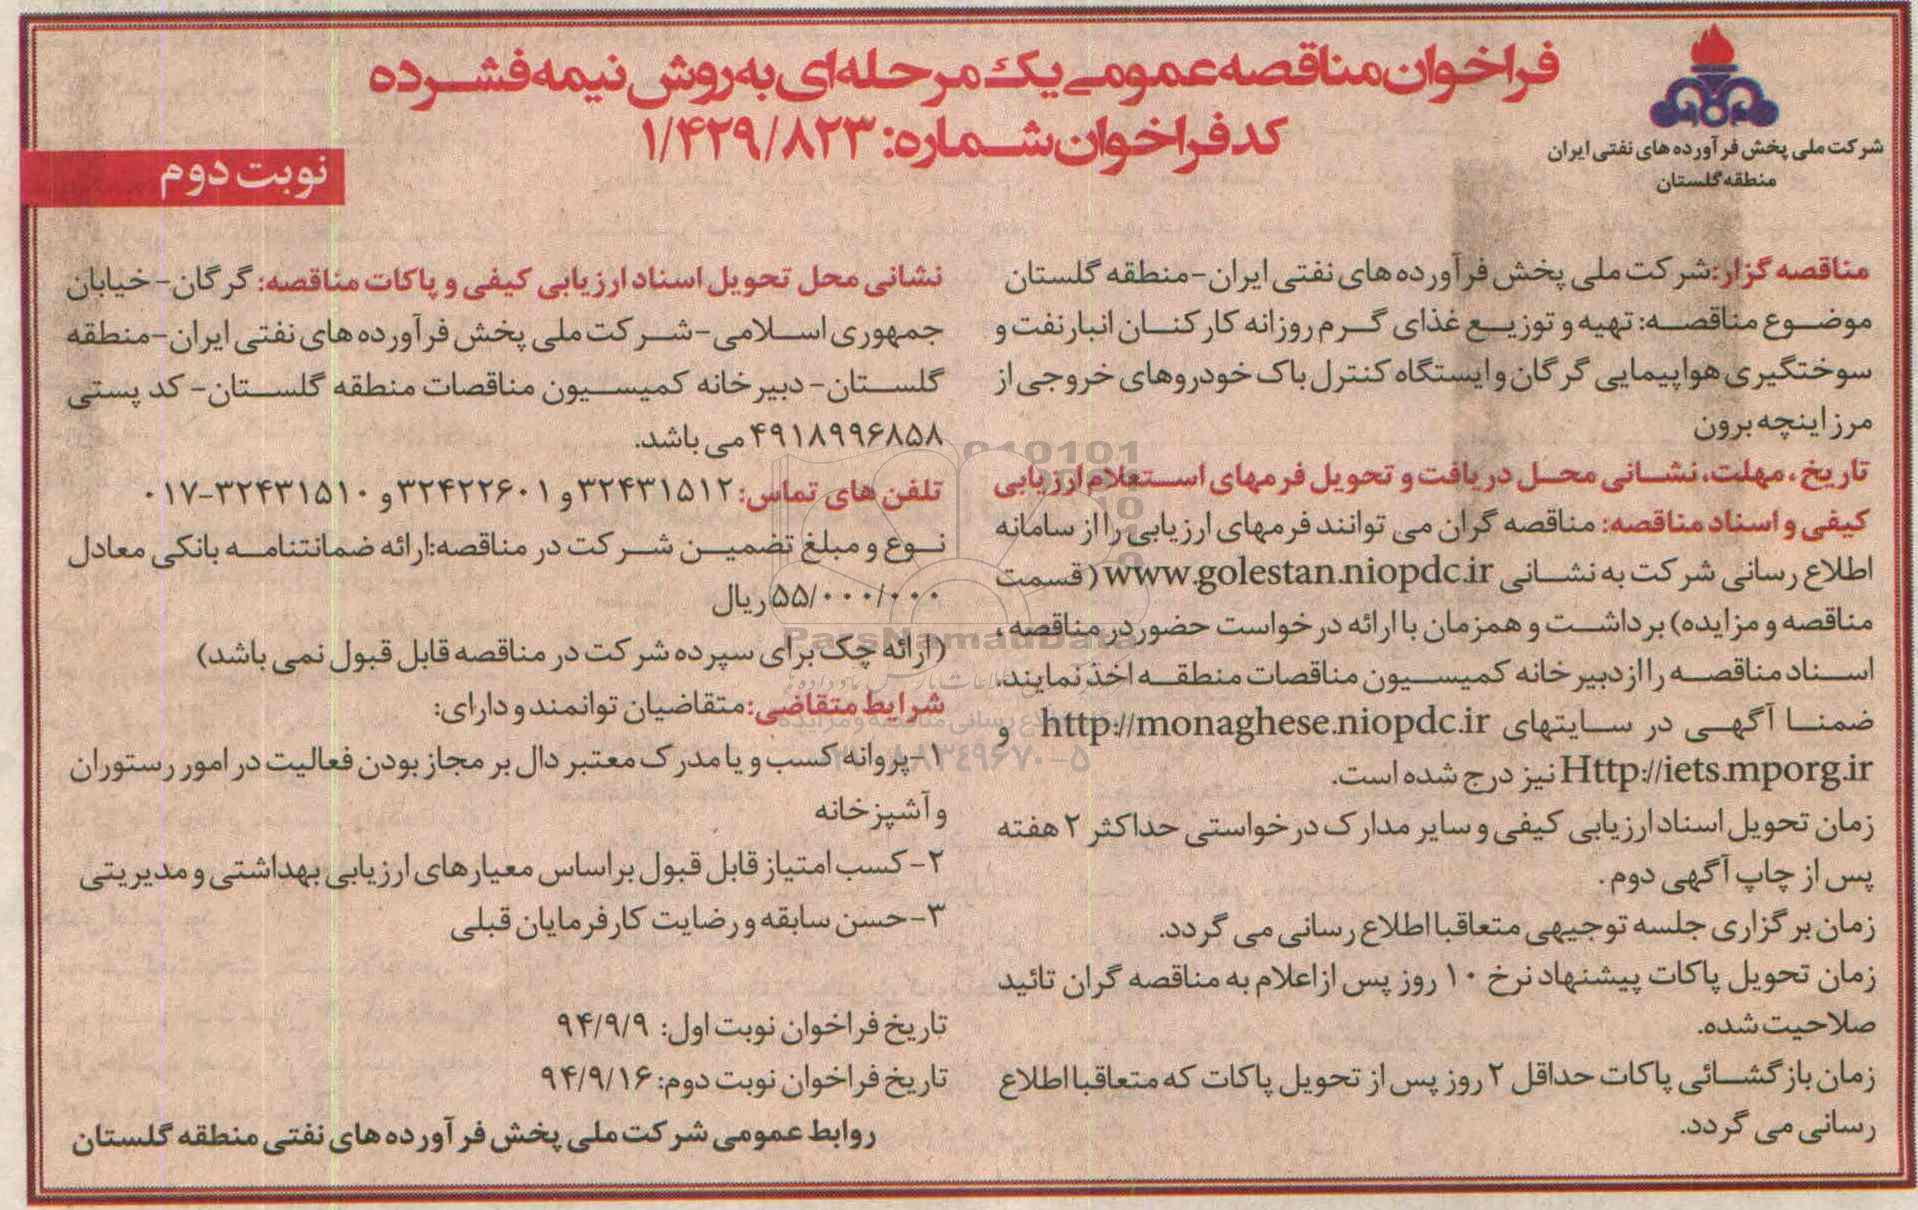 فراخوان مناقصه عمومی یک مرحله‌ای به روش نیمه فشرده
کد فراخوان شماره: ۱/۴۲۹/۸۲۳
شرکت ملی پخش فرآورده های نفتی ایران
منطقه گلستان
نوبت دوم
مناقصه گزار: شرکت ملی پخش فرآورده های نفتی ایران-منطقه گلستان
موضوع مناقصه: تهیه و توزیع غذای گرم روزانه کارکنان انبارنفت و
سوختگیری هواپیمایی گرگان و ایستگاه کنترل باک خودروهای خروجی از
مرز اینچه برون
تاریخ، مهلت، نشانی محل دریافت و تحویل فرمهای استعلام ارزیابی
کیفی و اسناد مناقصه: مناقصه گران می توانند فرمهای ارزیابی را از سامانه
اطلاع رسانی شرکت به نشانی www.golestan.niopdc.ir (قسمت
مناقصه و مزایده) برداشت و همزمان با ارائه درخواست حضور در مناقصه،
اسناد مناقصه را از دبیرخانه کمیسیون مناقصات منطقه اخذ نمایند.
ضمنا آگهی در سایتهای http://monaghese.niopdc.ir و
Http://iets.mporg.ir نیز درج شده است.
زمان تحویل اسناد ارزیابی کیفی و سایر مدارک درخواستی حداکثر ۲ هفته
پس از چاپ آگهی دوم.
زمان برگزاری جلسه توجیهی متعاقبا اطلاع رسانی می گردد.
زمان تحویل پاکات پیشنهاد نرخ ۱۰ روز پس از اعلام به مناقصه گران تائید
صلاحیت شده.
زمان بازگشائی پاکات حداقل ۲ روز پس از تحویل پاکات که متعاقبا اطلاع
رسانی می گردد.
نشانی محل تحویل اسناد ارزیابی کیفی و پاکات مناقصه: گرگان-خیابان
جمهوری اسلامی-شرکت ملی پخش فرآورده های نفتی ایران-منطقه
گلستان-دبیرخانه کمیسیون مناقصات منطقه گلستان-کد پستی
۴۹۱۸۹۹۶۸۵۸ می باشد.
تلفن های تماس: ۳۲۴۳۱۵۱۲ و ۳۲۴۲۲۶۰۱ و ۳۲۴۳۱۵۱۰-۰۱۷
نوع و مبلغ تضمین شرکت در مناقصه: ارائه ضمانتنامه بانکی معادل
۵۵/۰۰۰/۰۰۰ ریال
(ارائه چک برای سپرده شرکت در مناقصه قابل قبول نمی باشد)
شرایط متقاضی: متقاضیان توانمند و دارای:
۱-پروانه کسب و یا مدرک معتبر دال بر مجاز بودن فعالیت در امور رستوران
و آشپزخانه
۲-کسب امتیاز قابل قبول براساس معیارهای ارزیابی بهداشتی و مدیریتی
۳-حسن سابقه و رضایت کارفرمایان قبلی
تاریخ فراخوان نوبت اول: ۹۴/۹/۹
تاریخ فراخوان نوبت دوم: ۹۴/۹/۱۶
روابط عمومی شرکت ملی پخش فرآورده های نفتی منطقه گلستان
ParsNamadData